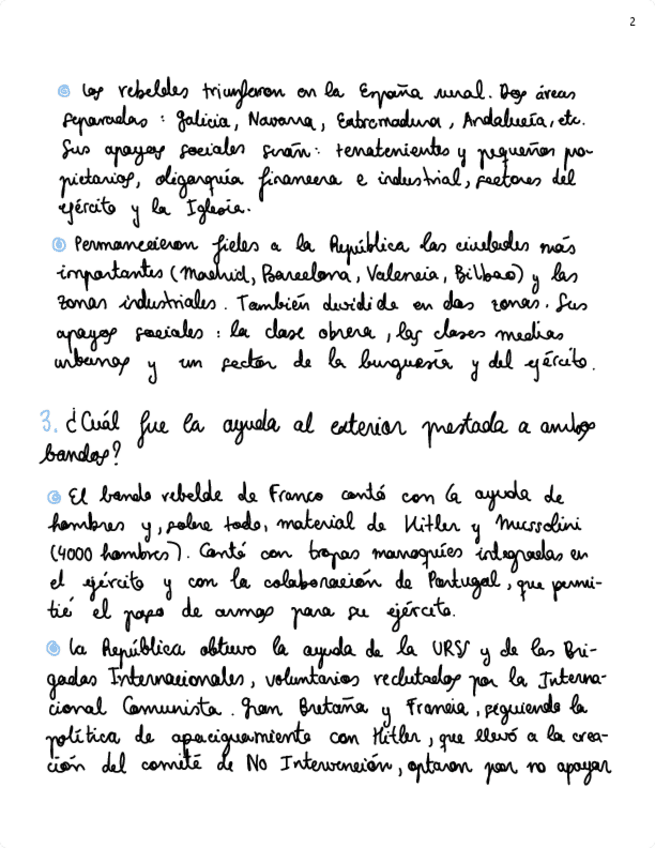 2
Los rebeldes triunfaron en la España rural. Dos áreas
separadas: Galicia, Navarra, Extremadura, Andalucía, etc.
Sus apoyos sociales serán: terratenientes y pequeños pro-
pietarios, oligarquía financiera e industrial, sectores del
ejército y la Iglesia.
Permanecieron fieles a la República las ciudades más
importantes (Madrid, Barcelona, Valencia, Bilbao) y las
zonas industriales. También dividida en dos zonas. Sus
apoyos sociales: la clase obrera, las clases medias
urbanas y un sector de la burguesía y del ejército.
3. ¿Cuál fue la ayuda al exterior prestada a ambos
bandos?
El bando rebelde de Franco contó con la ayuda de
hombres y, sobre todo, material de Hitler y Mussolini
(4000 hombres). Contó con tropas marroquíes integradas en
el ejército y con la colaboración de Portugal, que permi-
tió el paso de armas para su ejército.
La República obtuvo la ayuda de la URSS y de las Bri-
gadas Internacionales, voluntarios reclutados por la Interna-
cional Comunista. Gran Bretaña y Francia, siguiendo la
política de apaciguamiento con Hitler, que llevó a la crea-
ción del comité de No Intervención, optaron por no apoyar